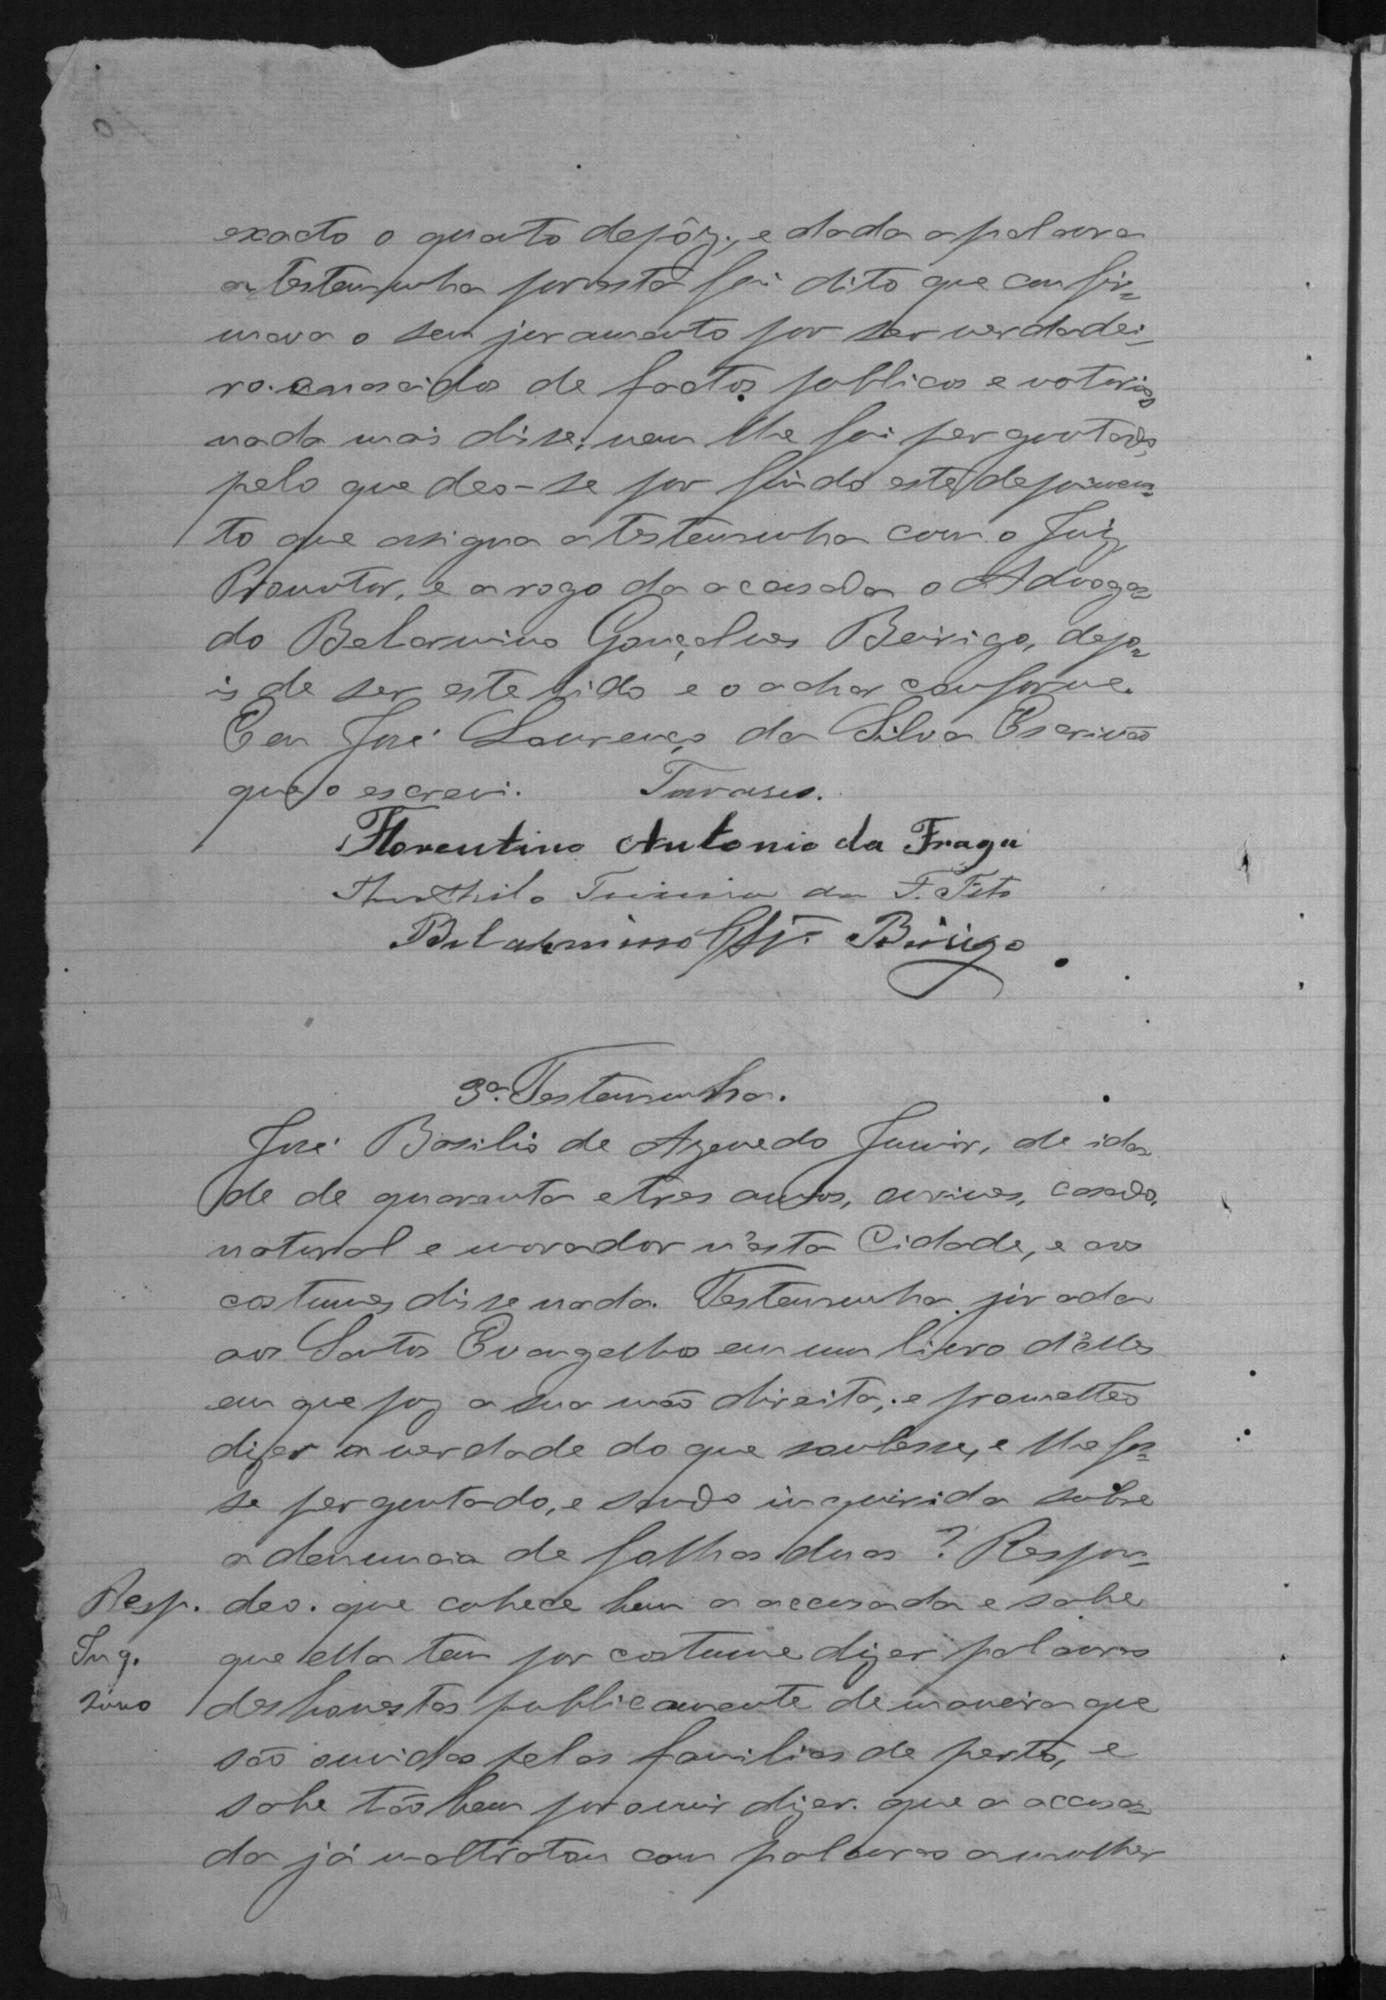 exacto o quanto depôz, e dada a palavra
a testemunha por esta foi dito que confir=
mava o seu juramento por ser verdadei=
ro. e nascido de factos publicos e notorios
nada mais disse, nem lhe foi perguntado,
pelo que deo-se por findo este depoimen=
to que assigna a testemunha com o Juiz
Promotor, e a rogo da acusada o Advoga=
do Belarmino Gonçalves Beirigo, depo=
is de ser este lido e o achar conforme.
Eu José Lourenço da Silva Escrivão
que o escrevi. Tavares.
Florentino Antonio da Fraga
Theophilo Teixeira da F. Feto
Belarmino Glz Birigo
3ª. Testemunha.
José Basilio de Azevedo Junior, de ida
de de quarenta e tres annos, ourives, casado,
natural e morador n'esta Cidade, e aos
costumes disse nada. Testemunha jurada
aos Santos Evangelhos em um livro d'elles
em que poz a sua mão direita, e prometteo
dizer a verdade do que soubesse, e lhe fos=
se perguntado, e sendo inquirida sobre
a denuncia de folhas duas? Respon=
Resp. deo. que cohece bem a accusada e sabe
Inq. que ella tem por costume dizer palavras
deshonestas publicamente de maneira que
são ouvidas pelas familias de perto, e
sabe tãobem por ouvir dizer. que a accusa=
da já maltratou com palavras a mulher